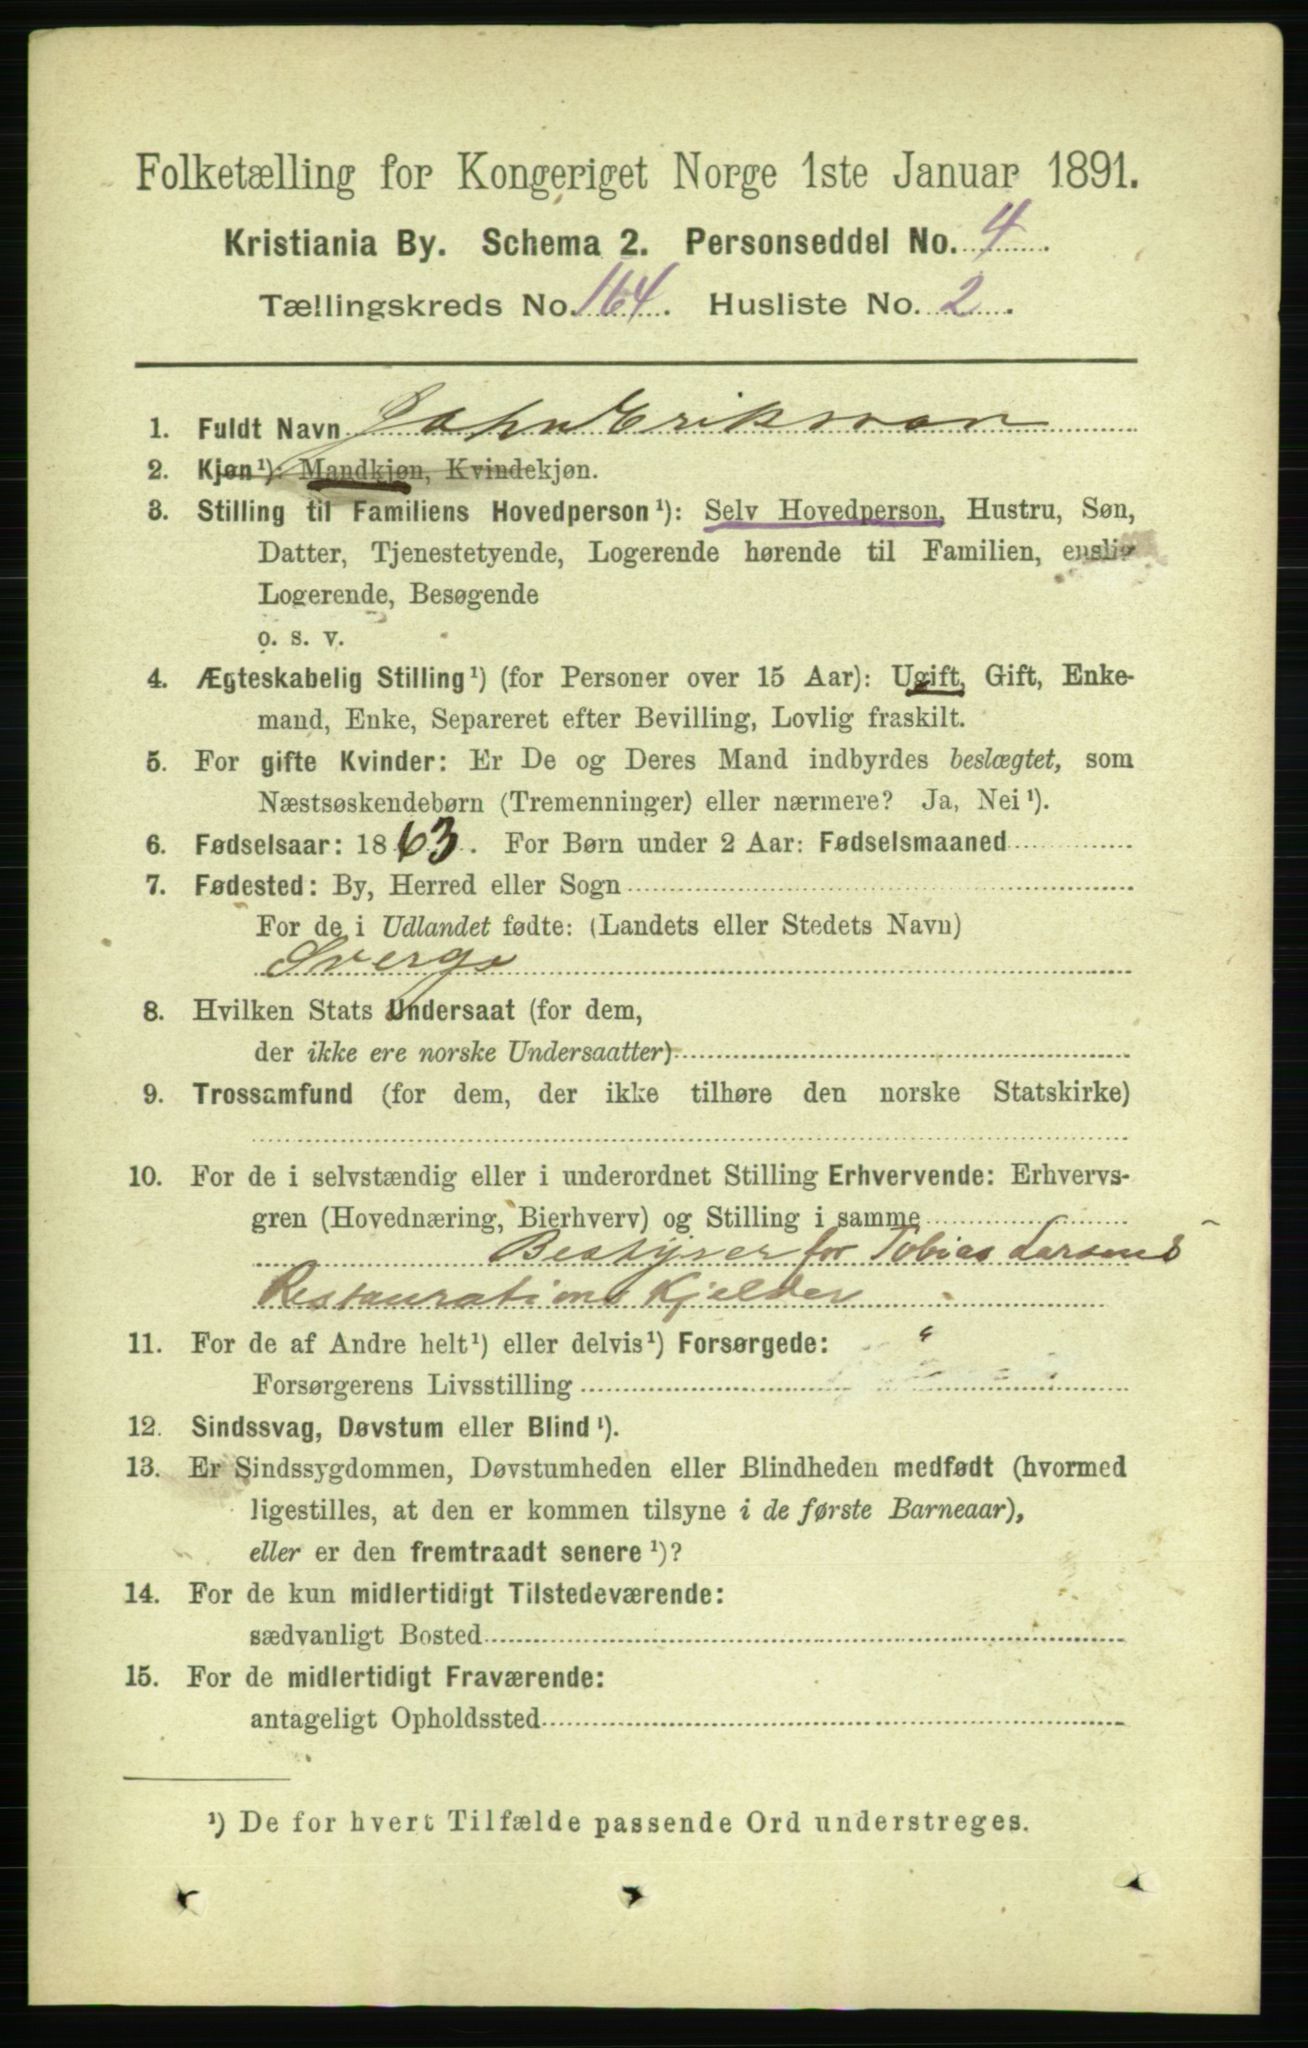 Folketælling for Kongeriget Norge 1ste Januar 1891.
Kristiania By. Schema 2. Personseddel No. 4.
Tællingskreds No. 164. Husliste No. 2.
1. Fuldt Navn John Erikson
2. Kjøn¹): Mandkjøn, Kvindekjøn.
3. Stilling til Familiens Hovedperson¹): Selv Hovedperson, Hustru, Søn,
Datter, Tjenestetyende, Logerende hørende til Familien, enslig
Logerende, Besøgende
o. s. v.
4. Ægteskabelig Stilling¹) (for Personer over 15 Aar): Ugift, Gift, Enke-
mand, Enke, Separeret efter Bevilling, Lovlig fraskilt.
5. For gifte Kvinder: Er De og Deres Mand indbyrdes beslægtet, som
Næstsøskendebørn (Tremenninger) eller nærmere? Ja, Nei¹).
6. Fødselsaar: 1863. For Børn under 2 Aar: Fødselsmaaned
7. Fødested: By, Herred eller Sogn
For de i Udlandet fødte: (Landets eller Stedets Navn)
Sverge
8. Hvilken Stats Undersaat (for dem,
der ikke ere norske Undersaatter)
9. Trossamfund (for dem, der ikke tilhøre den norske Statskirke)
10. For de i selvstændig eller i underordnet Stilling Erhvervende: Erhvervs-
gren (Hovednæring, Bierhverv) og Stilling i samme
Bestyrer for Tobias Larsens
Restaurations Kjelder
11. For de af Andre helt¹) eller delvis¹) Forsørgede:
Forsørgerens Livsstilling
12. Sindssvag, Døvstum eller Blind¹).
13. Er Sindssygdommen, Døvstumheden eller Blindheden medfødt (hvormed
ligestilles, at den er kommen tilsyne i de første Barneaar),
eller er den fremtraadt senere¹)?
14. For de kun midlertidigt Tilstedeværende:
sædvanligt Bosted
15. For de midlertidigt Fraværende:
antageligt Opholdssted
¹) De for hvert Tilfælde passende Ord understreges.